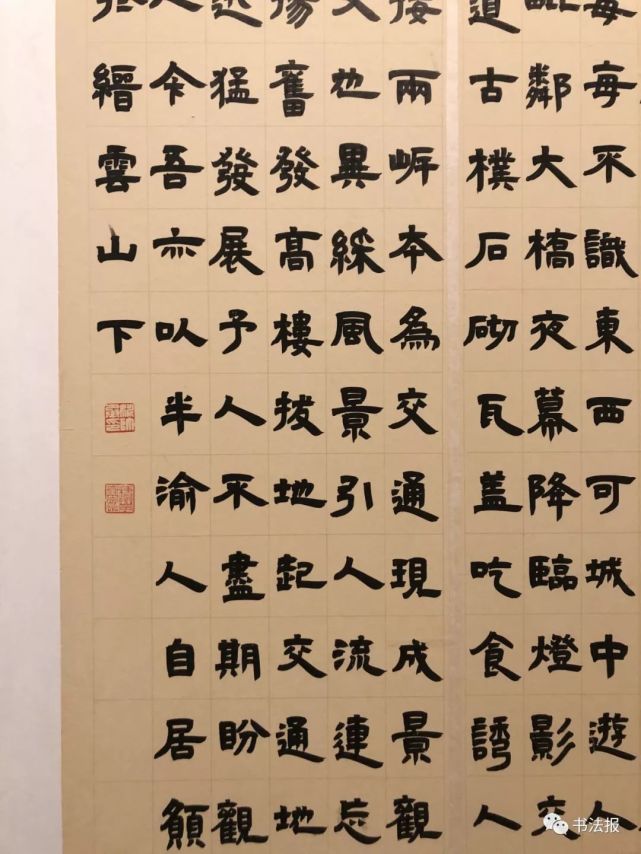 每不識東西可城中遊人
鄰大橋夜幕降臨燈影交
道古樸石砌瓦蓋吃食誘人
接兩岍本為交通現成景觀
也異綵風景引人流連忘
奮發高樓拔地起交通地
猛發展予人不盡期盼觀
今吾亦以半渝人自居願
縉雲山下
书法报